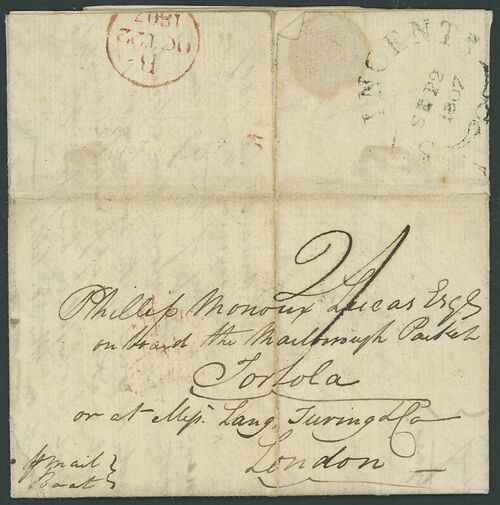 B
OCT 22
1807
INCENT
SEP 2
1807
2/
Phillip Monoux Lucas Esqr
on board the Marlborough Packet
Tortola
or at Messs. Lang, Turing & Co
London
pr mail
Boat